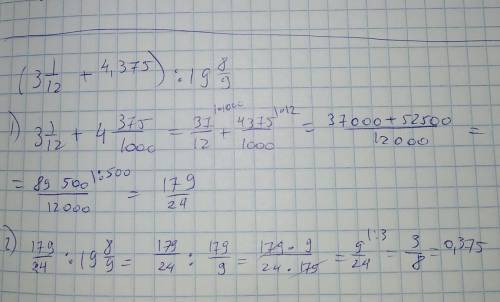 (3 1/12 + 4,375) : 19 8/9
1) 3 1/12 + 4 375/1000 = 37/12 |·1000 + 4375/1000 |·12 = 37000+52500/12000 =
= 89 500/12000 |:500 = 179/24
2) 179/24 : 19 8/9 = 179/24 : 179/9 = 179·9/24·175 = 9/24 |:3 = 3/8 = 0,375